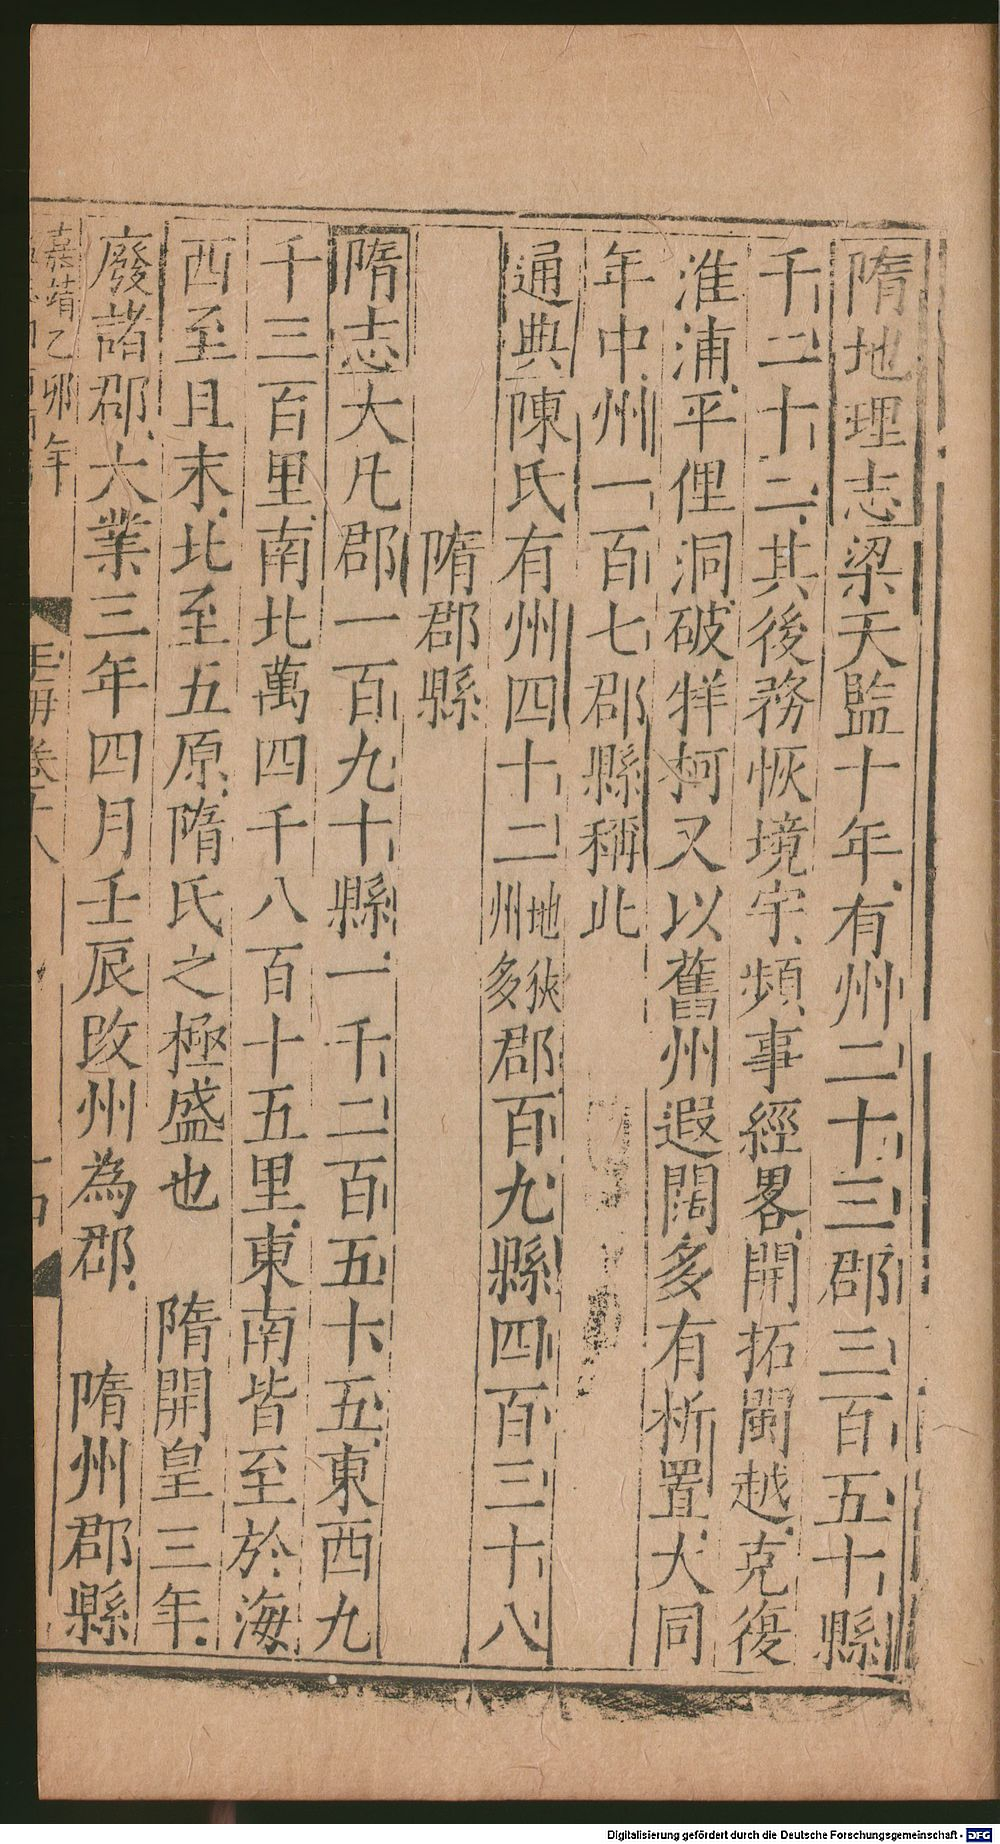 隋地理志梁天監十年有州二十三郡三百五十縣
千二十二其後務恢境宇頻事經畧開拓閩越克復
淮浦平俚洞破牂柯又以舊州遐闊多有析置大同
年中州一百七郡縣稱此
通典陳氏有州四十二地狹州多郡百九縣四百三十八
隋郡縣
隋志大凡郡一百九十縣一千二百五十五東西九
千三百里南北萬四千八百十五里東南皆至於海
西至且末北至五原隋氏之極盛也 隋開皇三年
廢諸郡大業三年四月壬辰改州為郡 隋州郡縣
嘉靖乙卯年
玉海卷十八
Digitalisierung gefördert durch die Deutsche Forschungsgemeinschaft - DFG